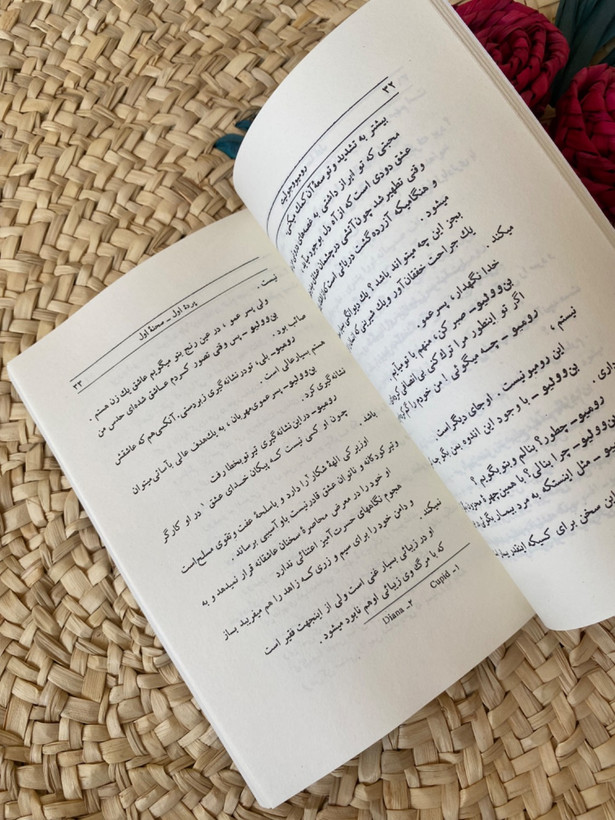 ۳۲
رومیو ژولیت
بیشتر به تشدید و توسعهٔ آن کمک میکنی
محبتی که تو ابراز داشتی به غصه‌های
عشق دودی است که از آه دل بوجود میآید
وقتی تطهیر شد چون آتشی در چشمان
و هنگامیکه آزرده گشت دریائی است که از
میشود.
بجز این چه میتواند باشد؟ یك دیوانگی
یك جراحت خفقان‌آور و یك شیرینی که
میکند.
خدا نگهدار، پسر عمو.
بن‌وولیو ـ صبر کن، منهم با تو میآیم
اگر تو اینطور مرا ترك کنی بی‌انصافی
رومیو ـ چه میگوئی! من خودم را گم
نیستم،
این رومیو نیست. او جای دیگر است.
بن‌وولیو ـ با وجود این اندوه بمن بگو
داری.
رومیو ـ چطور؟ بنالم و بتو بگویم؟
بن‌وولیو ـ چرا بنالی؟ با همین چهرهٔ
رومیو ـ مثل اینستکه به مرد بیمار بگوئی
این سخن برای کسیکه اینقدر
پردهٔ اول ـ صحنهٔ اول
۲۳
نیست.
ولی پسر عمو، در عین رنج بتو میگویم عاشق یك زن هستم.
بن‌وولیو ـ پس وقتی تصور کردم عاشق شده‌ای حدس من
صائب بود.
رومیو ـ بلی، تو در نشانه‌گیری زبردستی. آنکسی‌هم که عاشقش
هستم بسیار عالی است.
بن‌وولیو ـ پسر عموی مهربان، به یك هدف عالی بآسانی میتوان
نشانه‌گیری کرد.
رومیو ـ در این نشانه‌گیری تیر تو بخطا رفت
چون او کسی نیست که پیکان خدای عشق ۱ در او کارگر
باشد.
او زیرکی الههٔ شکار را دارد و با سلحهٔ عفت و تقوی مسلح است
و تیر کودکانه و ناتوان عشق قادر نیست باو آسیبی برساند.
او خود را در معرض محاصرهٔ سخنان عاشقانه قرار نمیدهد و به
هجوم نگاههای حسرت‌آمیز اعتنائی ندارد
و دامن خود را برای سیم و زری که زاهد را هم میفریبد باز
نمیکند.
او در زیبائی بسیار غنی است ولی از اینجهت فقیر است
که با مرگ وی زیبائی او هم نابود میشود.
۱- Cupid ۲- Diana